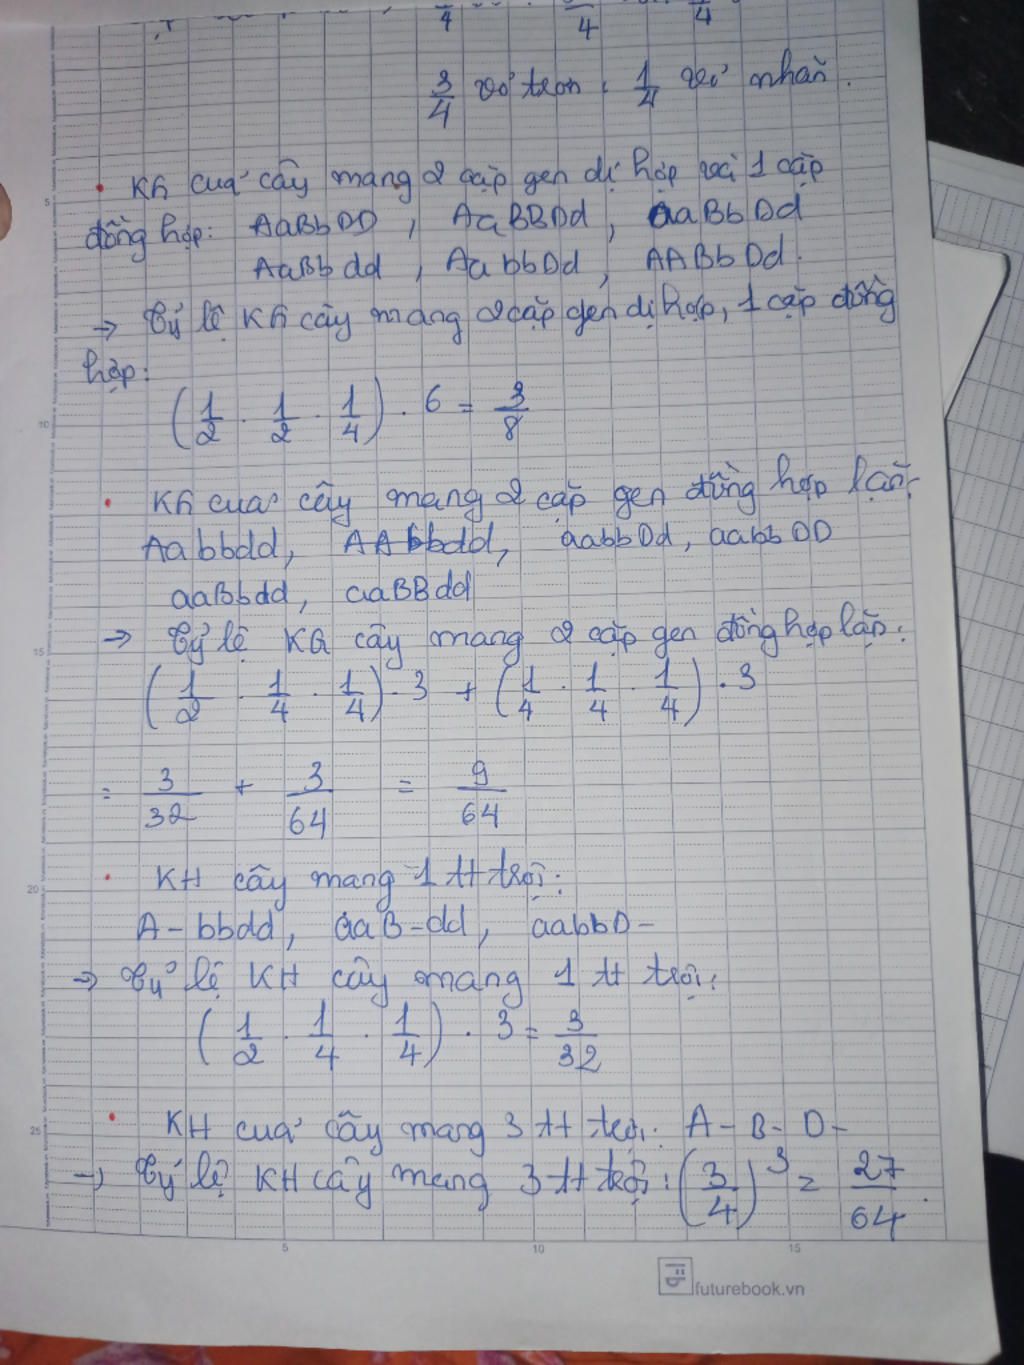 4 4 4
3/4 vỏ trơn : 1/4 vỏ nhăn.
• KG của cây mang 2 cặp gen dị hợp và 1 cặp
5
đồng hợp: AaBbDD, AaBBDd, aaBbDd
AaBbdd, AabbDd, AABbDd.
→ Tỷ lệ KG cây mang 2 cặp gen dị hợp, 1 cặp đồng
hợp:
10
(1/2 . 1/2 . 1/4) . 6 = 3/8
• KG của cây mang 2 cặp gen đồng hợp lặn:
Aabbdd, AAbbdd, aabbDd, aabbDD
aaBbdd, aaBBdd
15
⇒ Tỷ lệ KG cây mang 2 cặp gen đồng hợp lặn:
(1/2 . 1/4 . 1/4) . 3 + (1/4 . 1/4 . 1/4) . 3
= 3/32 + 3/64 = 9/64
20
• KH cây mang 1 tt trội:
A-bbdd, aaB-dd, aabbD-
⇒ Tỷ lệ KH cây mang 1 tt trội:
(1/2 . 1/4 . 1/4) . 3 = 3/32
25
• KH của cây mang 3 tt trội: A-B-D-
→ Tỷ lệ KH cây mang 3 tt trội: (3/4)³ = 27/64.
5 10 15
futurebook.vn